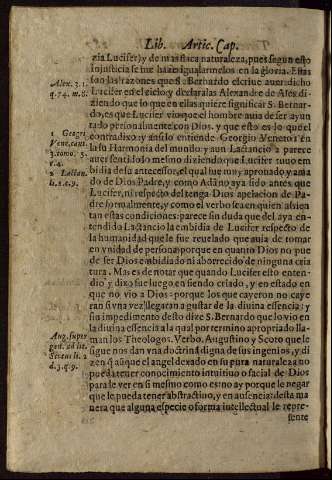 Lib. Artic. Cap.
zia Lucifer) y de mas flaca naturaleza, pues segun esto
injusticia se me haze igualarmelos en la gloria. Estas
son las razones que S. Bernardo escriue auer dicho
Lucifer en el cielo y declaralas Alexandre de Ales di-
ziendo que lo que en ellas quiere significar S. Bernar-
do, es que Lucifer vio que el hombre auia de ser ayun
tado personalmente con Dios, y que esto es lo que el
contradixo: y ansi lo entiende Georgio Veneto en
la su Harmonia del mundo: y aun Lactancio parece
auer sentido lo mesmo diziendo que Lucifer tuuo em
bidia de su antecessor, el qual fue muy aprouado y ama
do de Dios Padre, y como nadie aya sido antes que
Lucifer, ni respecto del tenga Dios apelacion de Pa-
dre formalmente, y como el verbo sea en quien assien
tan estas condiciones: parece sin duda que del aya en-
tendido Lactancio la embidia de Lucifer respecto de
la humanidad que le fue reuelado que auia de tomar
en vnidad de persona: porque en quanto Dios no pue
de ser Dios embidiado ni aborrecido de ninguna cria
tura. Mas es de notar que quando Lucifer esto enten-
dio y dixo fue luego en siendo criado, y en estado en
que no vio a Dios: porque los que cayeron no caye
ran si vna vez llegaran a gustar de la diuina essencia: y
sin impedimento desto dize S. Bernardo que lo vio en
la diuina essencia a la qual por termino apropriado lla-
man los Theologos. Verbo. Augustino y Scoto que le
sigue nos dan vna doctrina digna de sus ingenios, y di-
zen q̃ aũque el angel dexado en su pura naturaleza no
pueda tener conocimiento intuitiuo o facial de Dios
para le ver en si mesmo como es: no ay porque le negar
que le pueda tener abstractiuo, y en ausencia: desta ma
nera que alguna especie o forma intellectual le repre-
sente
Alex. 3.1.
q.74. m.8.
1 Georgi.
Vene. cant.
3. tomo. 3.
c.4.
2 Lactan.
li.2.c.9.
Aug. super
gen. ad lit.
Scotus li. 2
d.3.q.9.